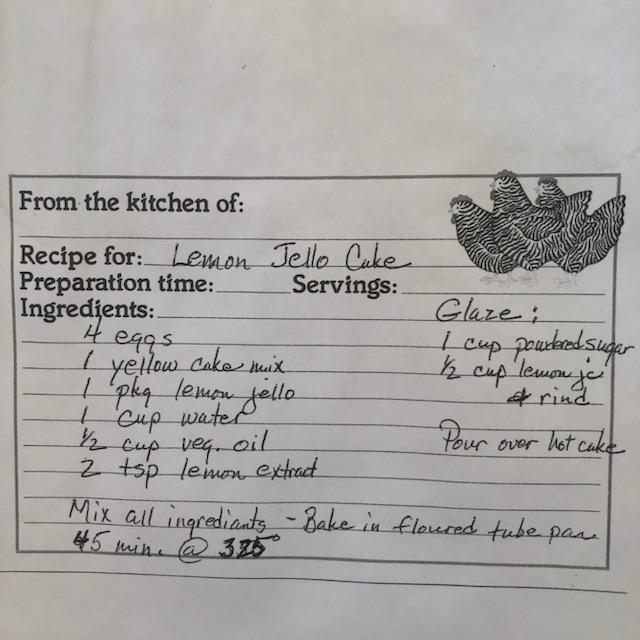 From the kitchen of:
Recipe for: Lemon Jello Cake
Preparation time: Servings:
Ingredients:
4 eggs
1 yellow cake mix
1 pkg lemon jello
1 cup water
½ cup veg. oil
2 tsp lemon extract
Glaze:
1 cup powdered sugar
½ cup lemon jc
& rind
Pour over hot cake
Mix all ingrediants - Bake in floured tube pan
45 min. @ 325°